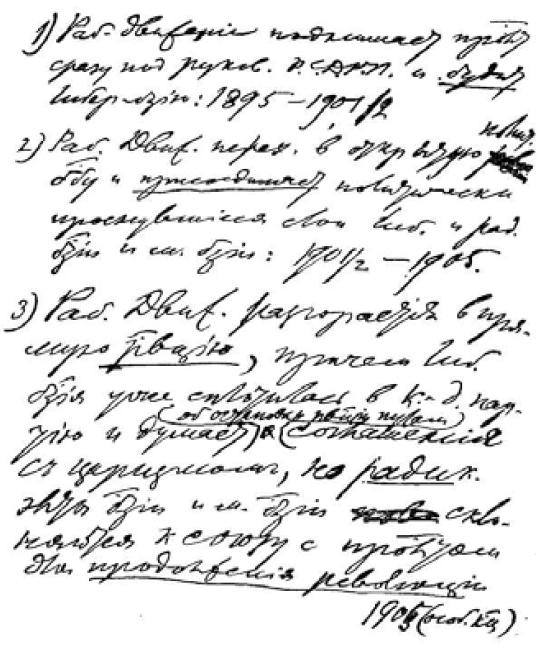 1) Раб. движение поднимает прбт
сразу под руков. Р.С.Д.Р.П. и будит
либер. бзію: 1895–1901/2
2) Раб. Движ. перех. в открытую полит.
ббу и присоединяет политически
проснувшіеся слои либ. и рад.
бзіи и м. бзіи: 1901/2 – 1905.
3) Раб. Движ. разгорается в пря-
мую рвцію, причем либ.
бзія уже сплотилась в к.-д. пар-
тію и думает (об остановке рвціи путем) соглашения
съ царизмом, но радик.
элты бзіи и м. бзіи скло-
няются к союзу с прбтом
для продолженія революціи
1905 (особ. кц)